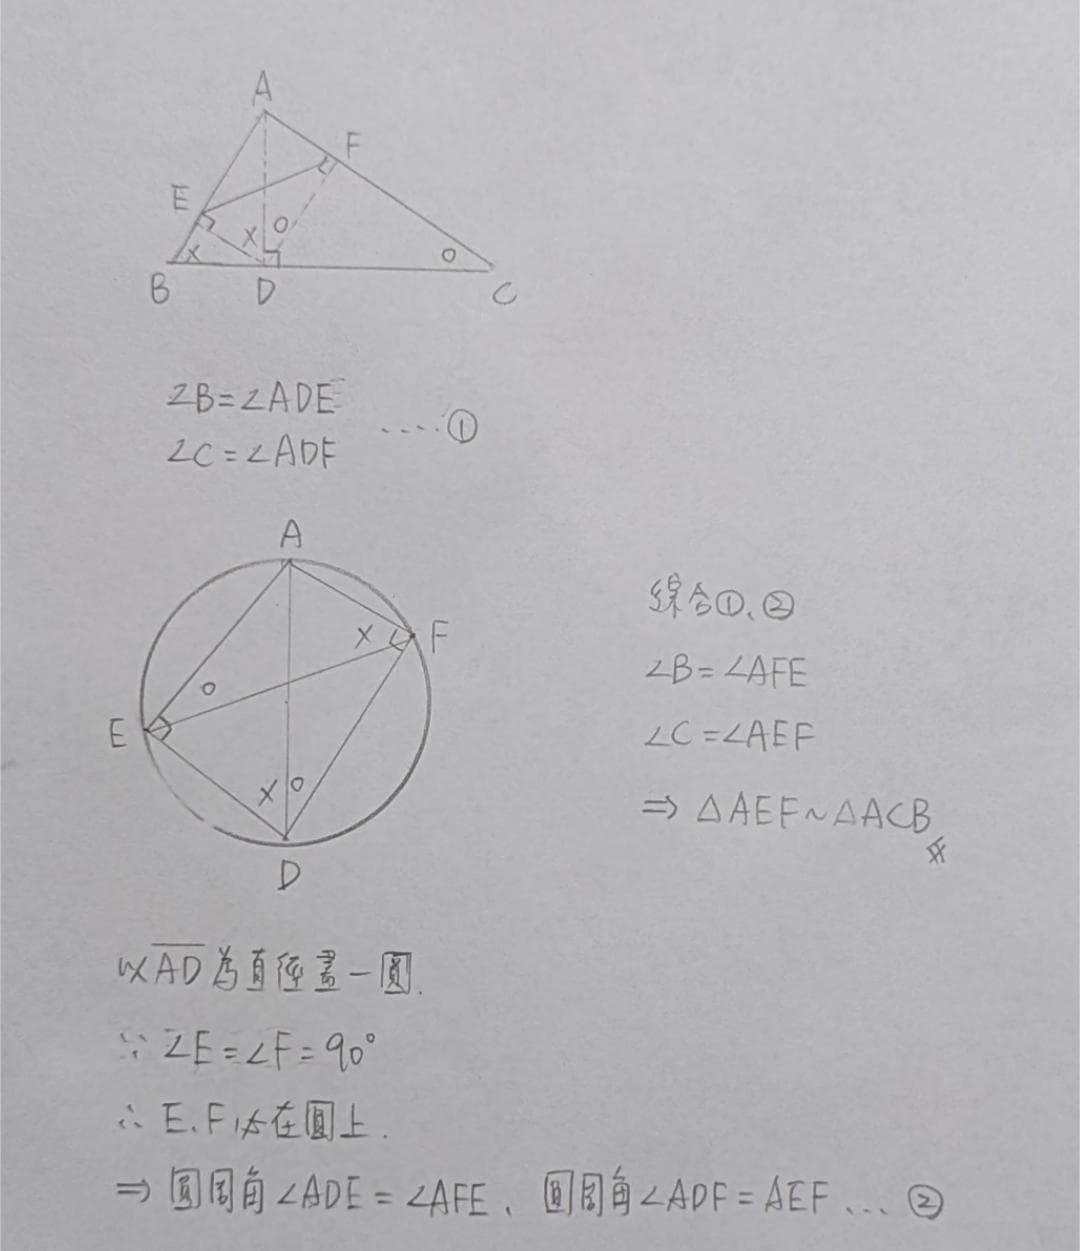 A
F
E
x o
x o
B D C
∠B=∠ADE
∠C=∠ADF ....①
A
x F
o
E
x o
D
綜合①、②
∠B=∠AFE
∠C=∠AEF
⇒ △AEF~△ACB
以AD為直徑畫一圓.
∵ ∠E=∠F=90°
∴ E、F必在圓上.
⇒ 圓周角∠ADE=∠AFE、圓周角∠ADF=AEF ... ②